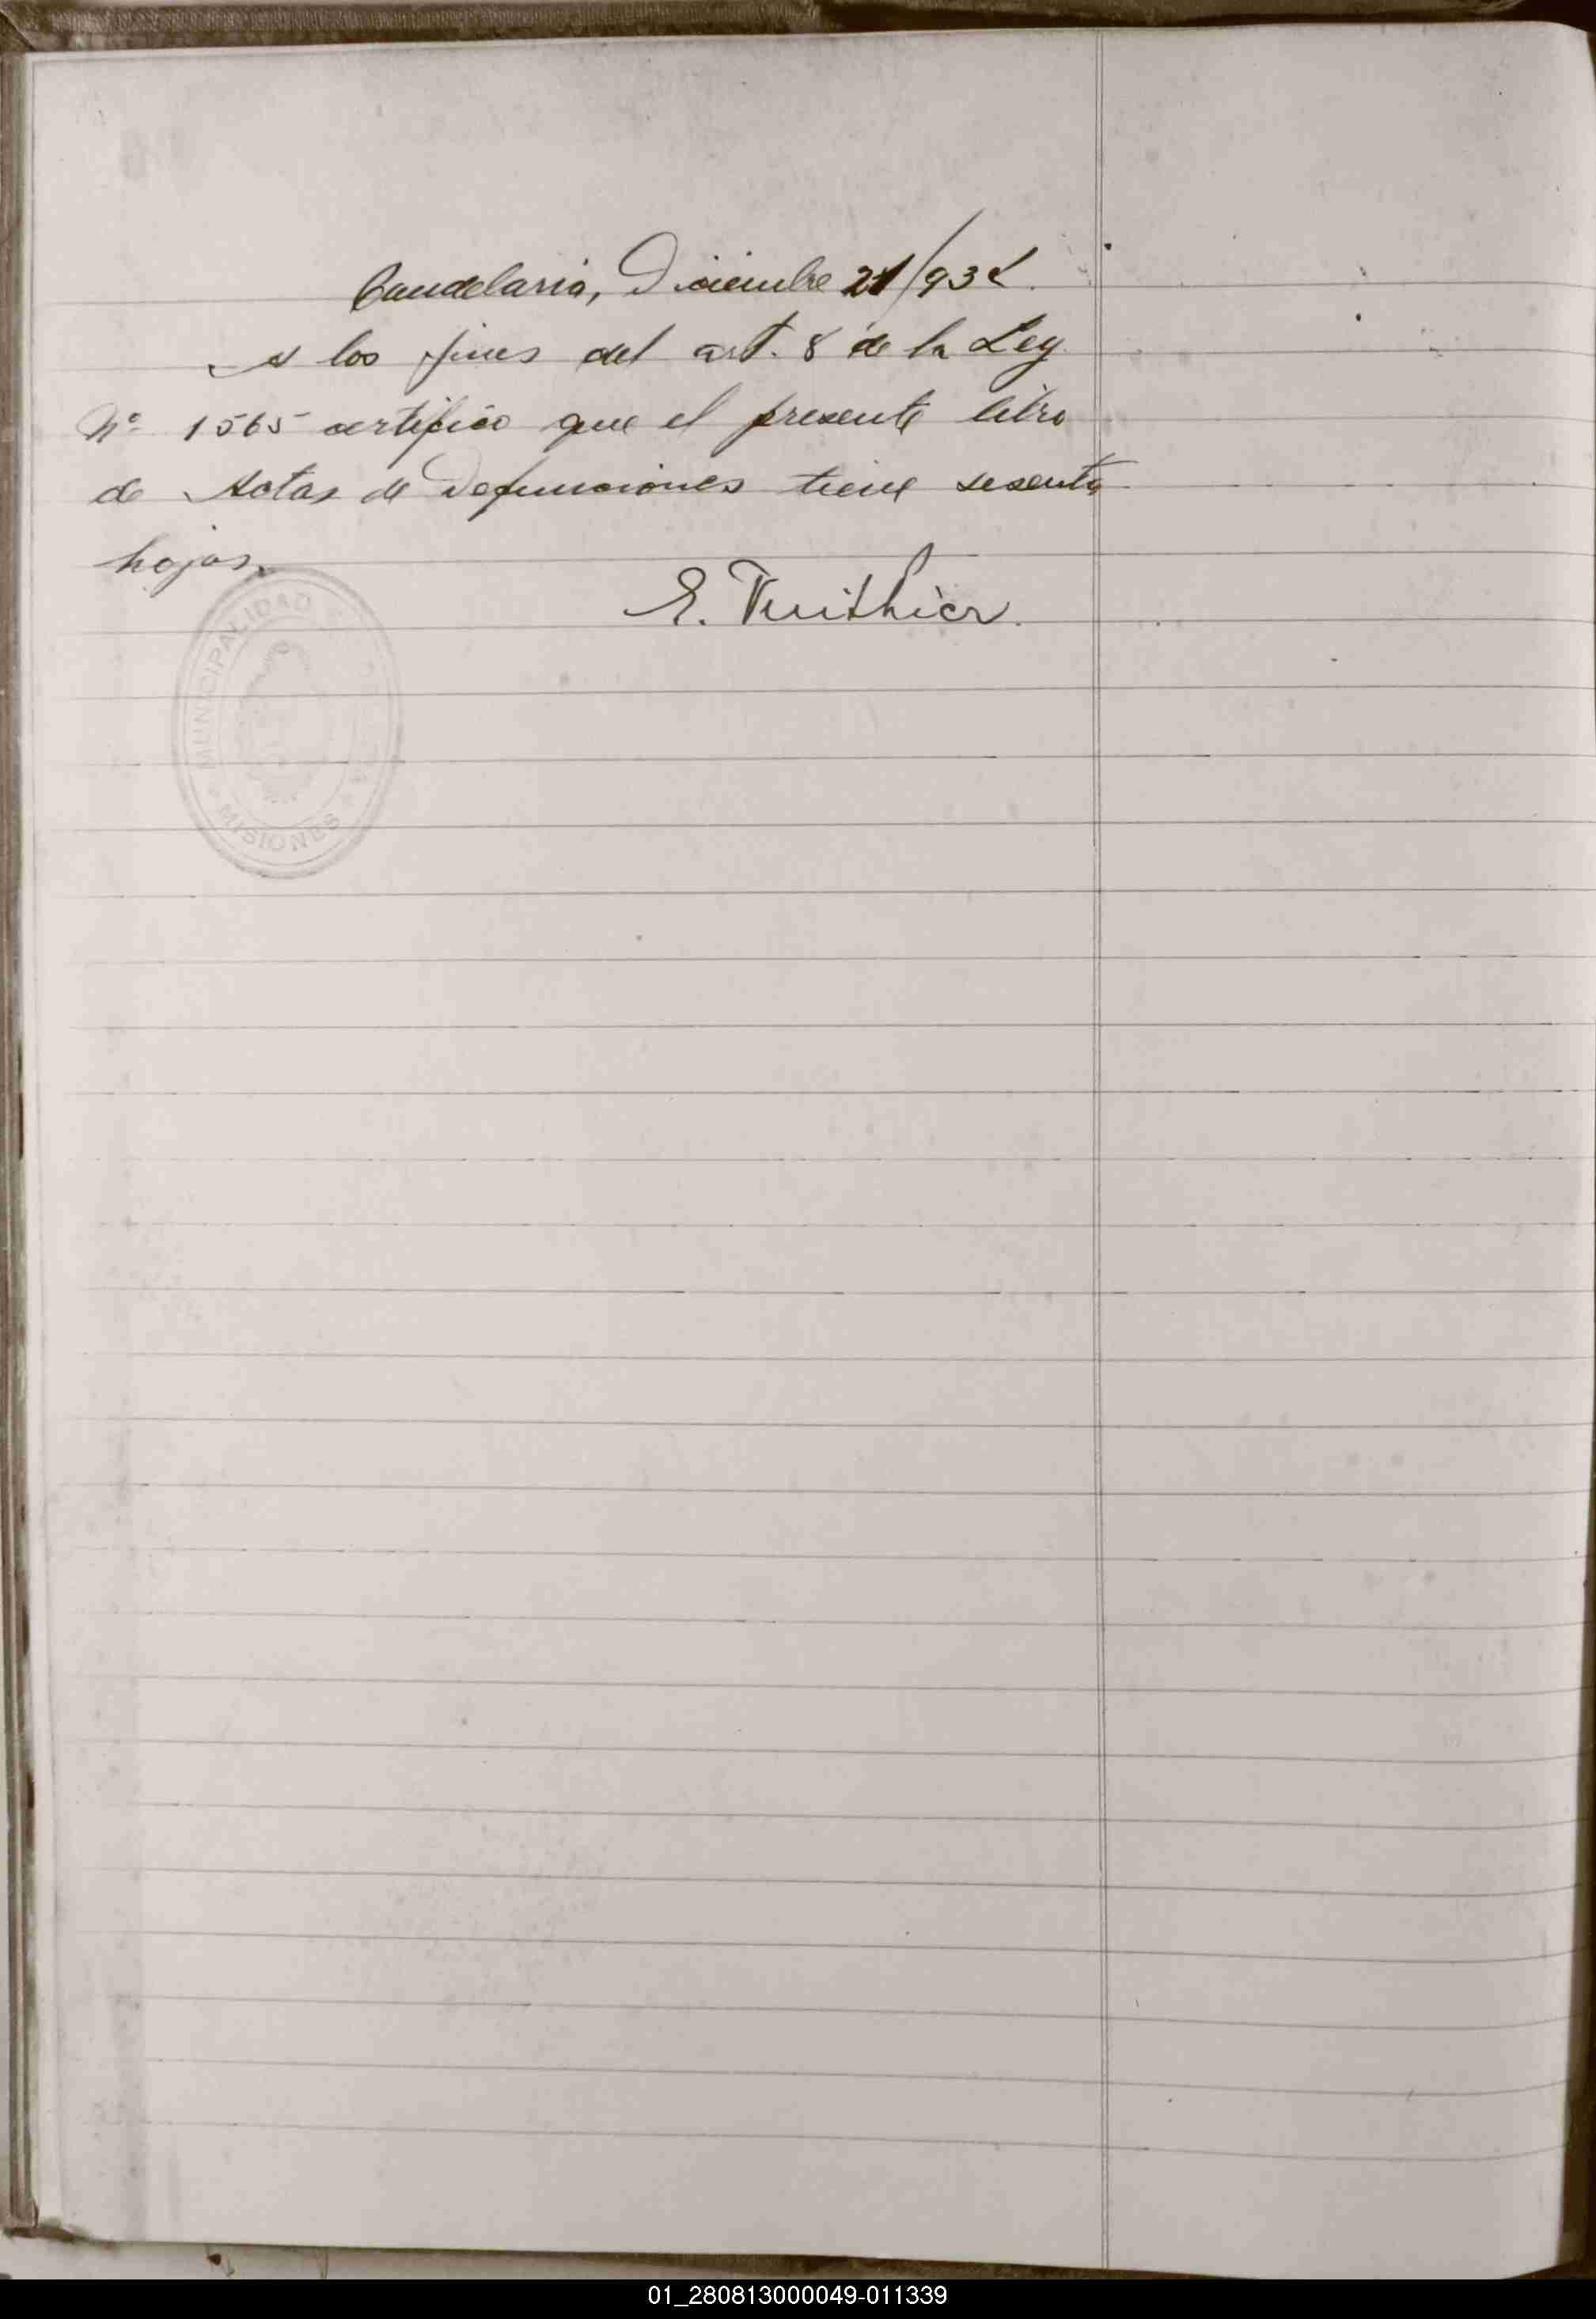 Candelaria, Diciembre 21/932.
A los fines del art. 8 de la Ley
Nº 1565 certifico que el presente libro
de Actas de Defunciones tiene sesenta
hojas.
E. Vuithier.
MUNICIPALIDAD
MISIONES
01_280813000049-011339